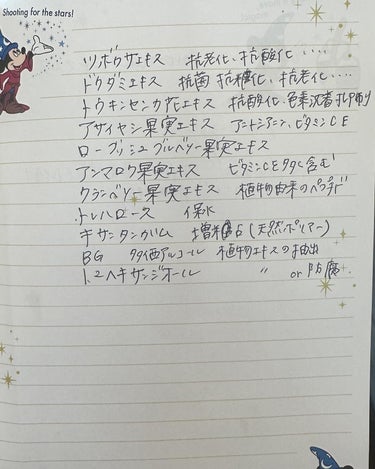 Shooting for the stars!
ツボクサエキス 抗老化、抗酸化 ‥‥
ドクダミエキス 抗菌 抗糖化、抗老化‥‥
トウキンセンカ花エキス 抗酸化、色素沈着
アサイヤシ果実エキス アントシアニン、ビタミンCE
ローブッシュブルーベリー果実エキス
アンマロク果実エキス ビタミンCE多く含む
クランベリー果実エキス 植物由来の
トレハロース 保水
キサンタンガム 増粘 (天然ポリマー)
BG 多価アルコール 植物エキスの抽出
1.2ヘキサンジオール 〃 or 防腐.